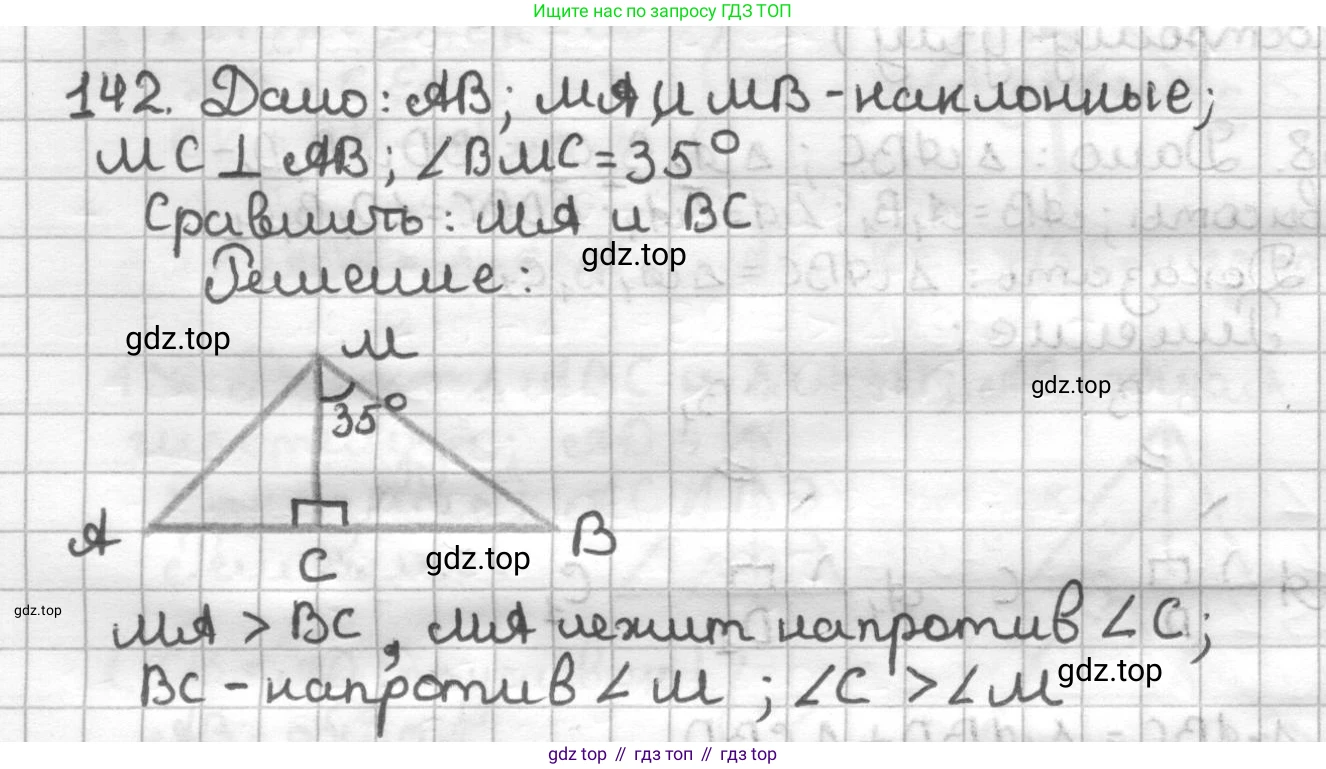 Ищите нас по запросу ГДЗ ТОП
142. Дано: AB; MA и MB - наклонные;
MC⊥AB; ∠BMC=35°
Сравнить: MA и BC
gdz.top
Решение:
gdz.top
M
gdz.top
35°
A
B
C
gdz.top
gdz.top
MA > BC, MA лежит напротив ∠C;
BC - напротив ∠M; ∠C > ∠M
gdz.top
gdz top // гдз топ // гдз top